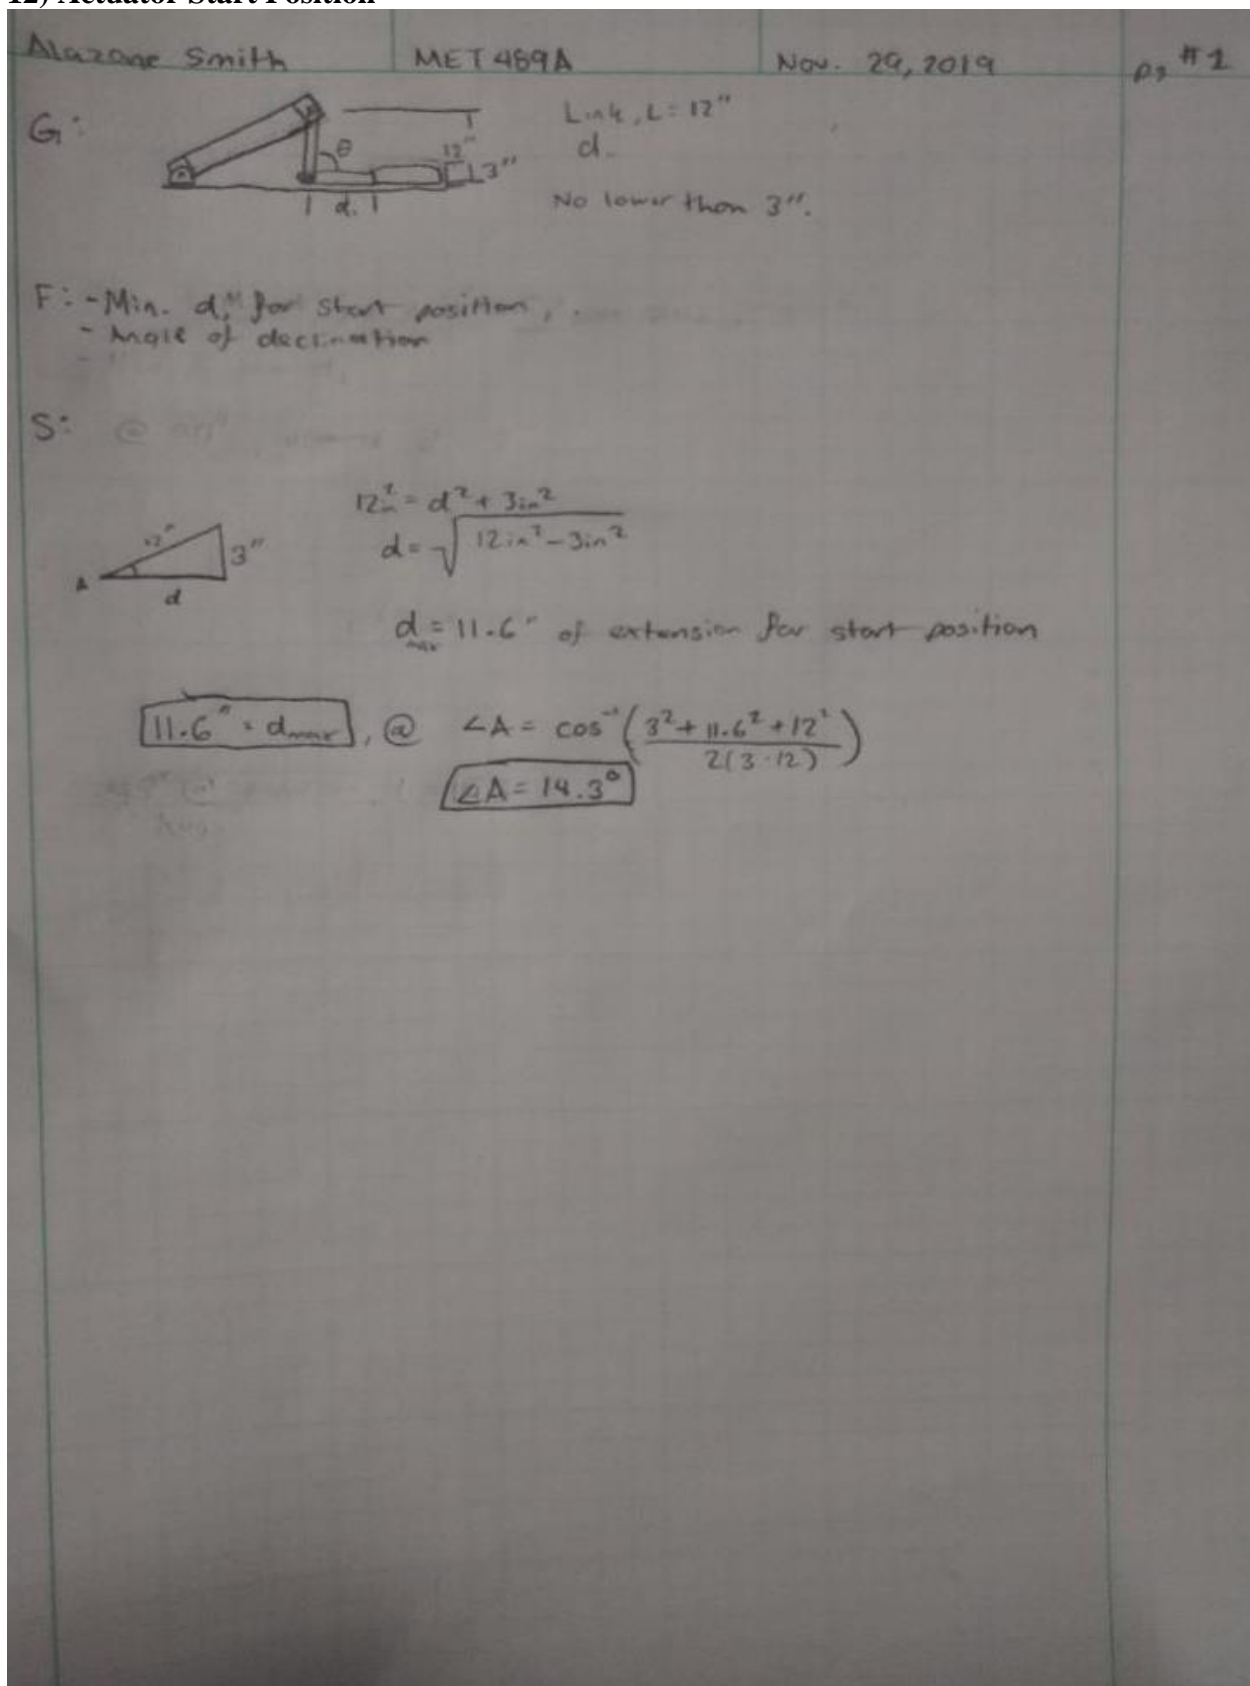 12) Actuator Start Position
Alazane Smith MET 489A Nov. 29, 2019 pg #1
G: Link, L = 12"
θ 12" 3" d.
d. No lower than 3".
F: - Min. d, for start position,
- Angle of declination
S: @
12in² = d² + 3in²
12" 3" d = √12in² - 3in²
A d
d = 11.6" of extension for start position
max
11.6" = dmax, @ ∠A = cos⁻¹(3² + 11.6² + 12² / 2(3·12))
∠A = 14.3°